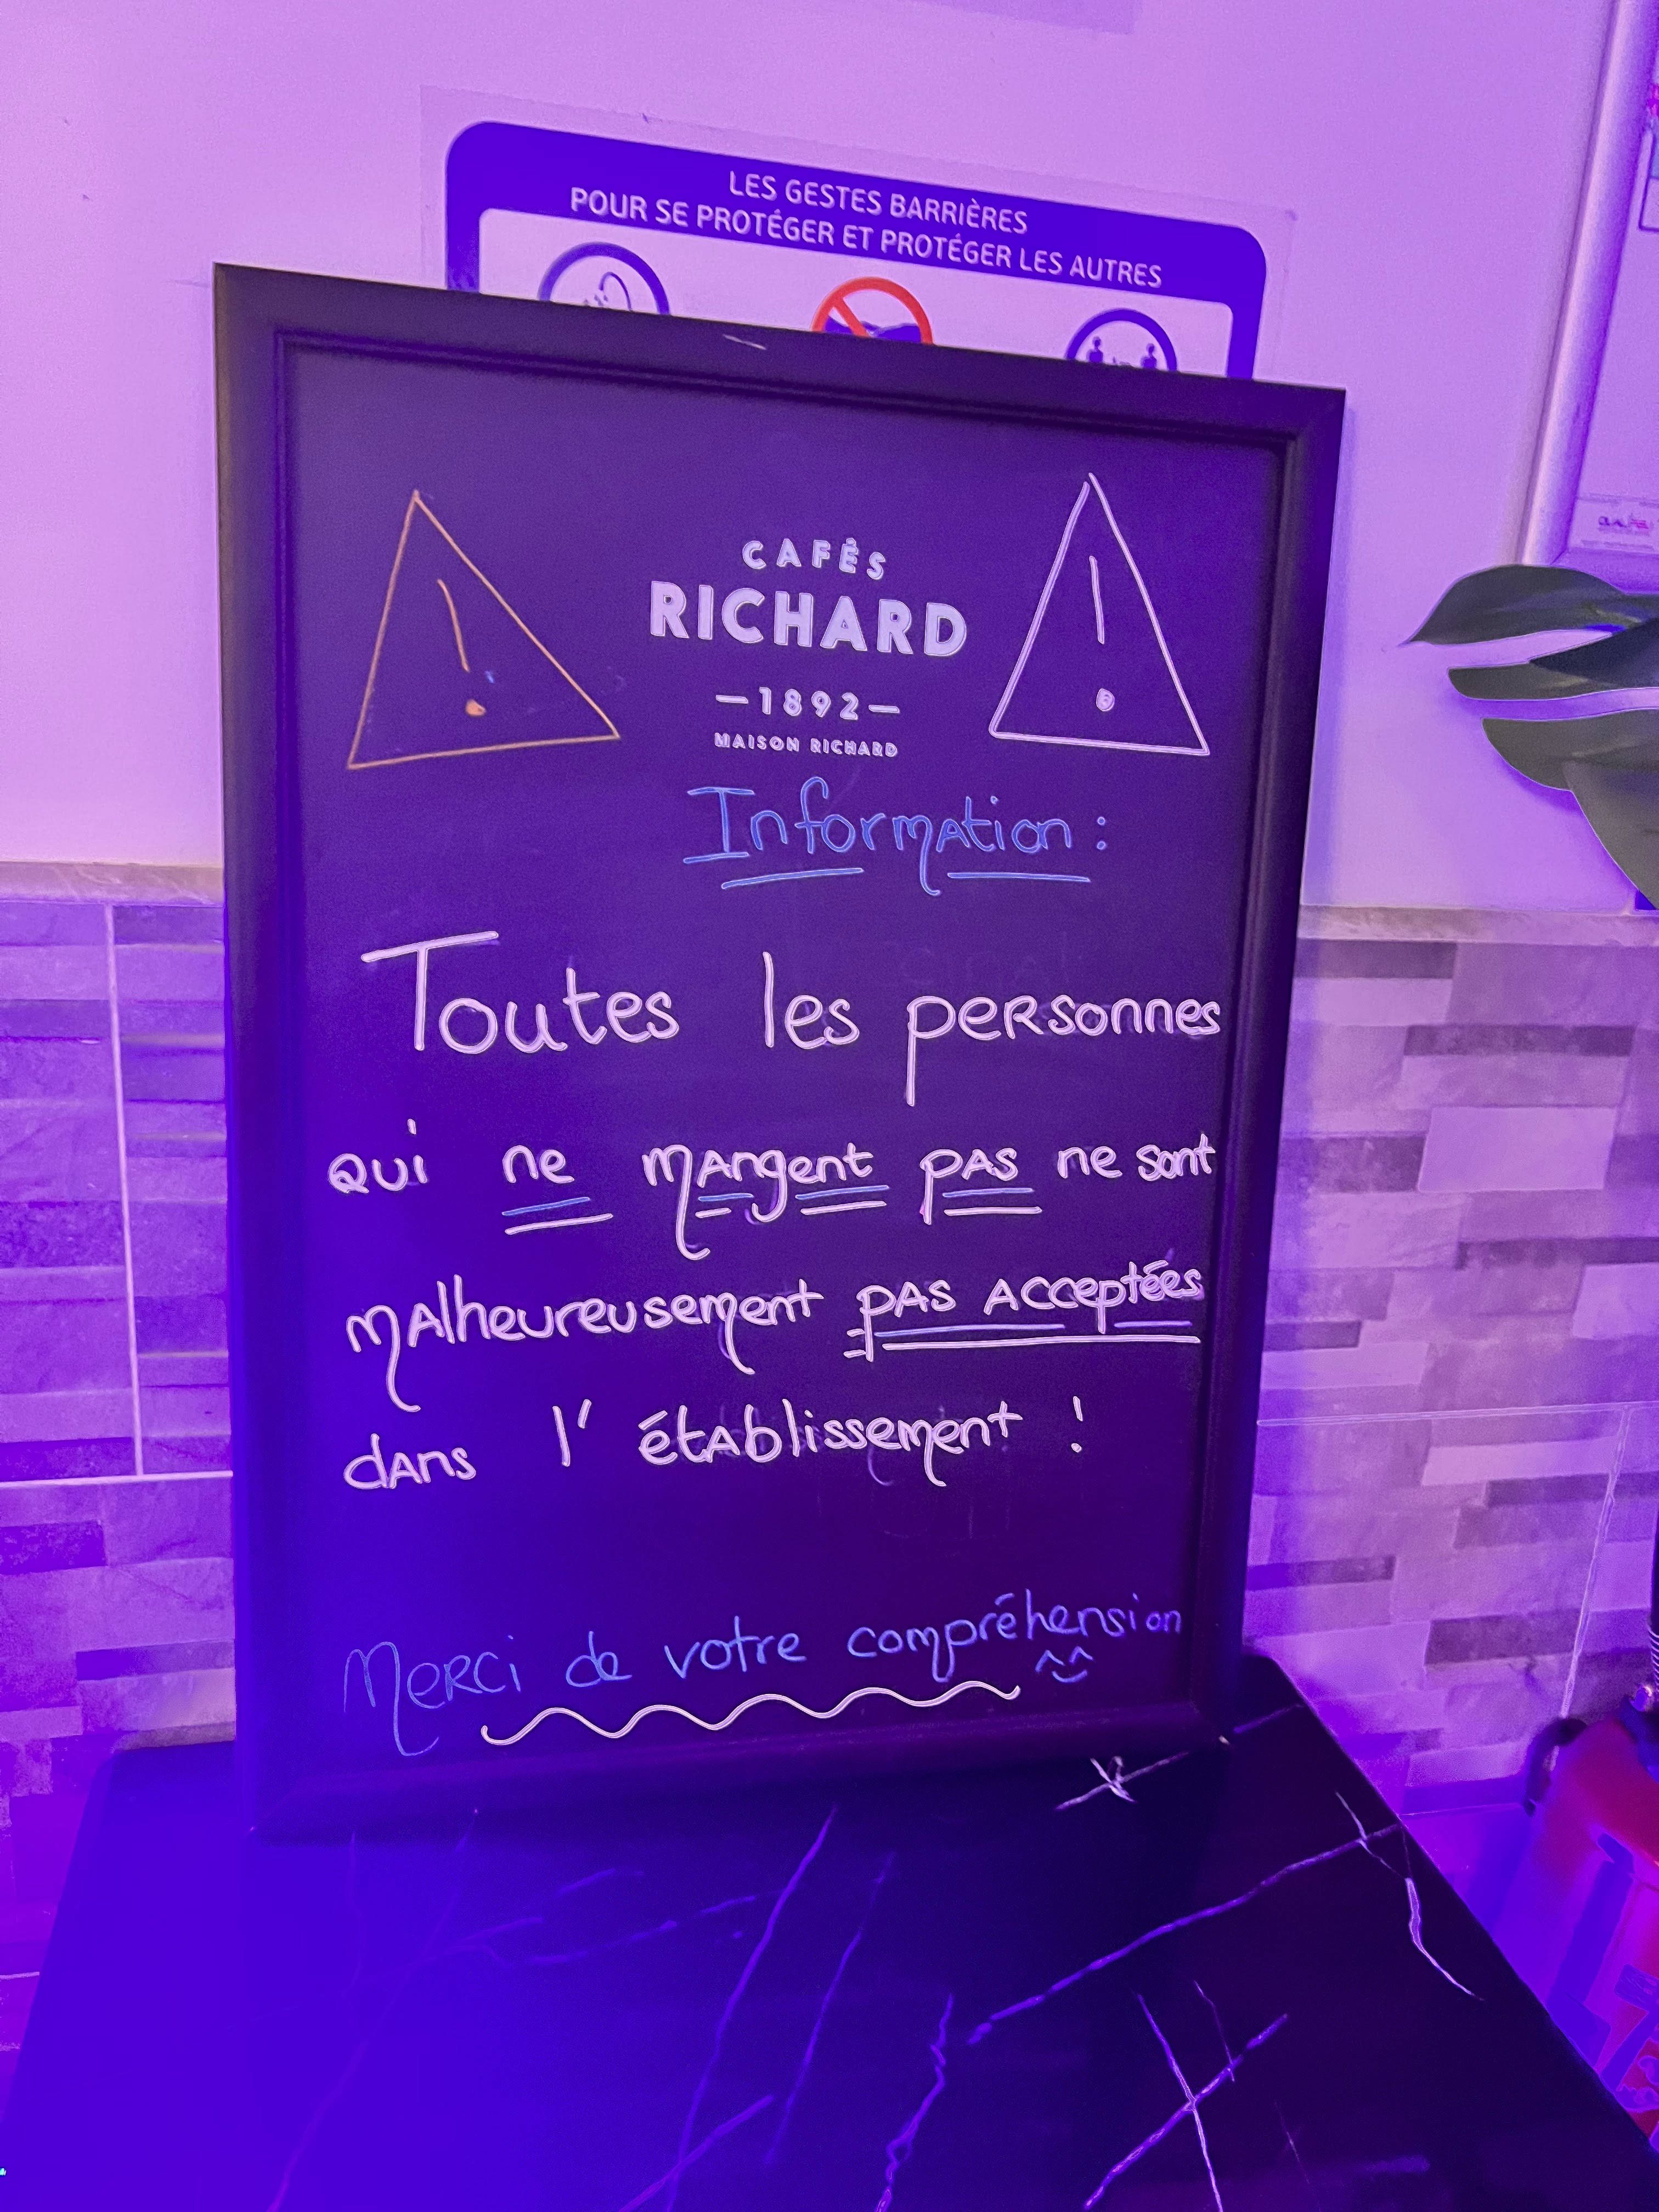 LES GESTES BARRIÈRES
POUR SE PROTÉGER ET PROTÉGER LES AUTRES
CAFÉS
RICHARD
—1892—
MAISON RICHARD
Information :
Toutes les personnes
qui ne mangent pas ne sont
malheureusement pas acceptées
dans l'établissement !
Merci de votre compréhension ^^